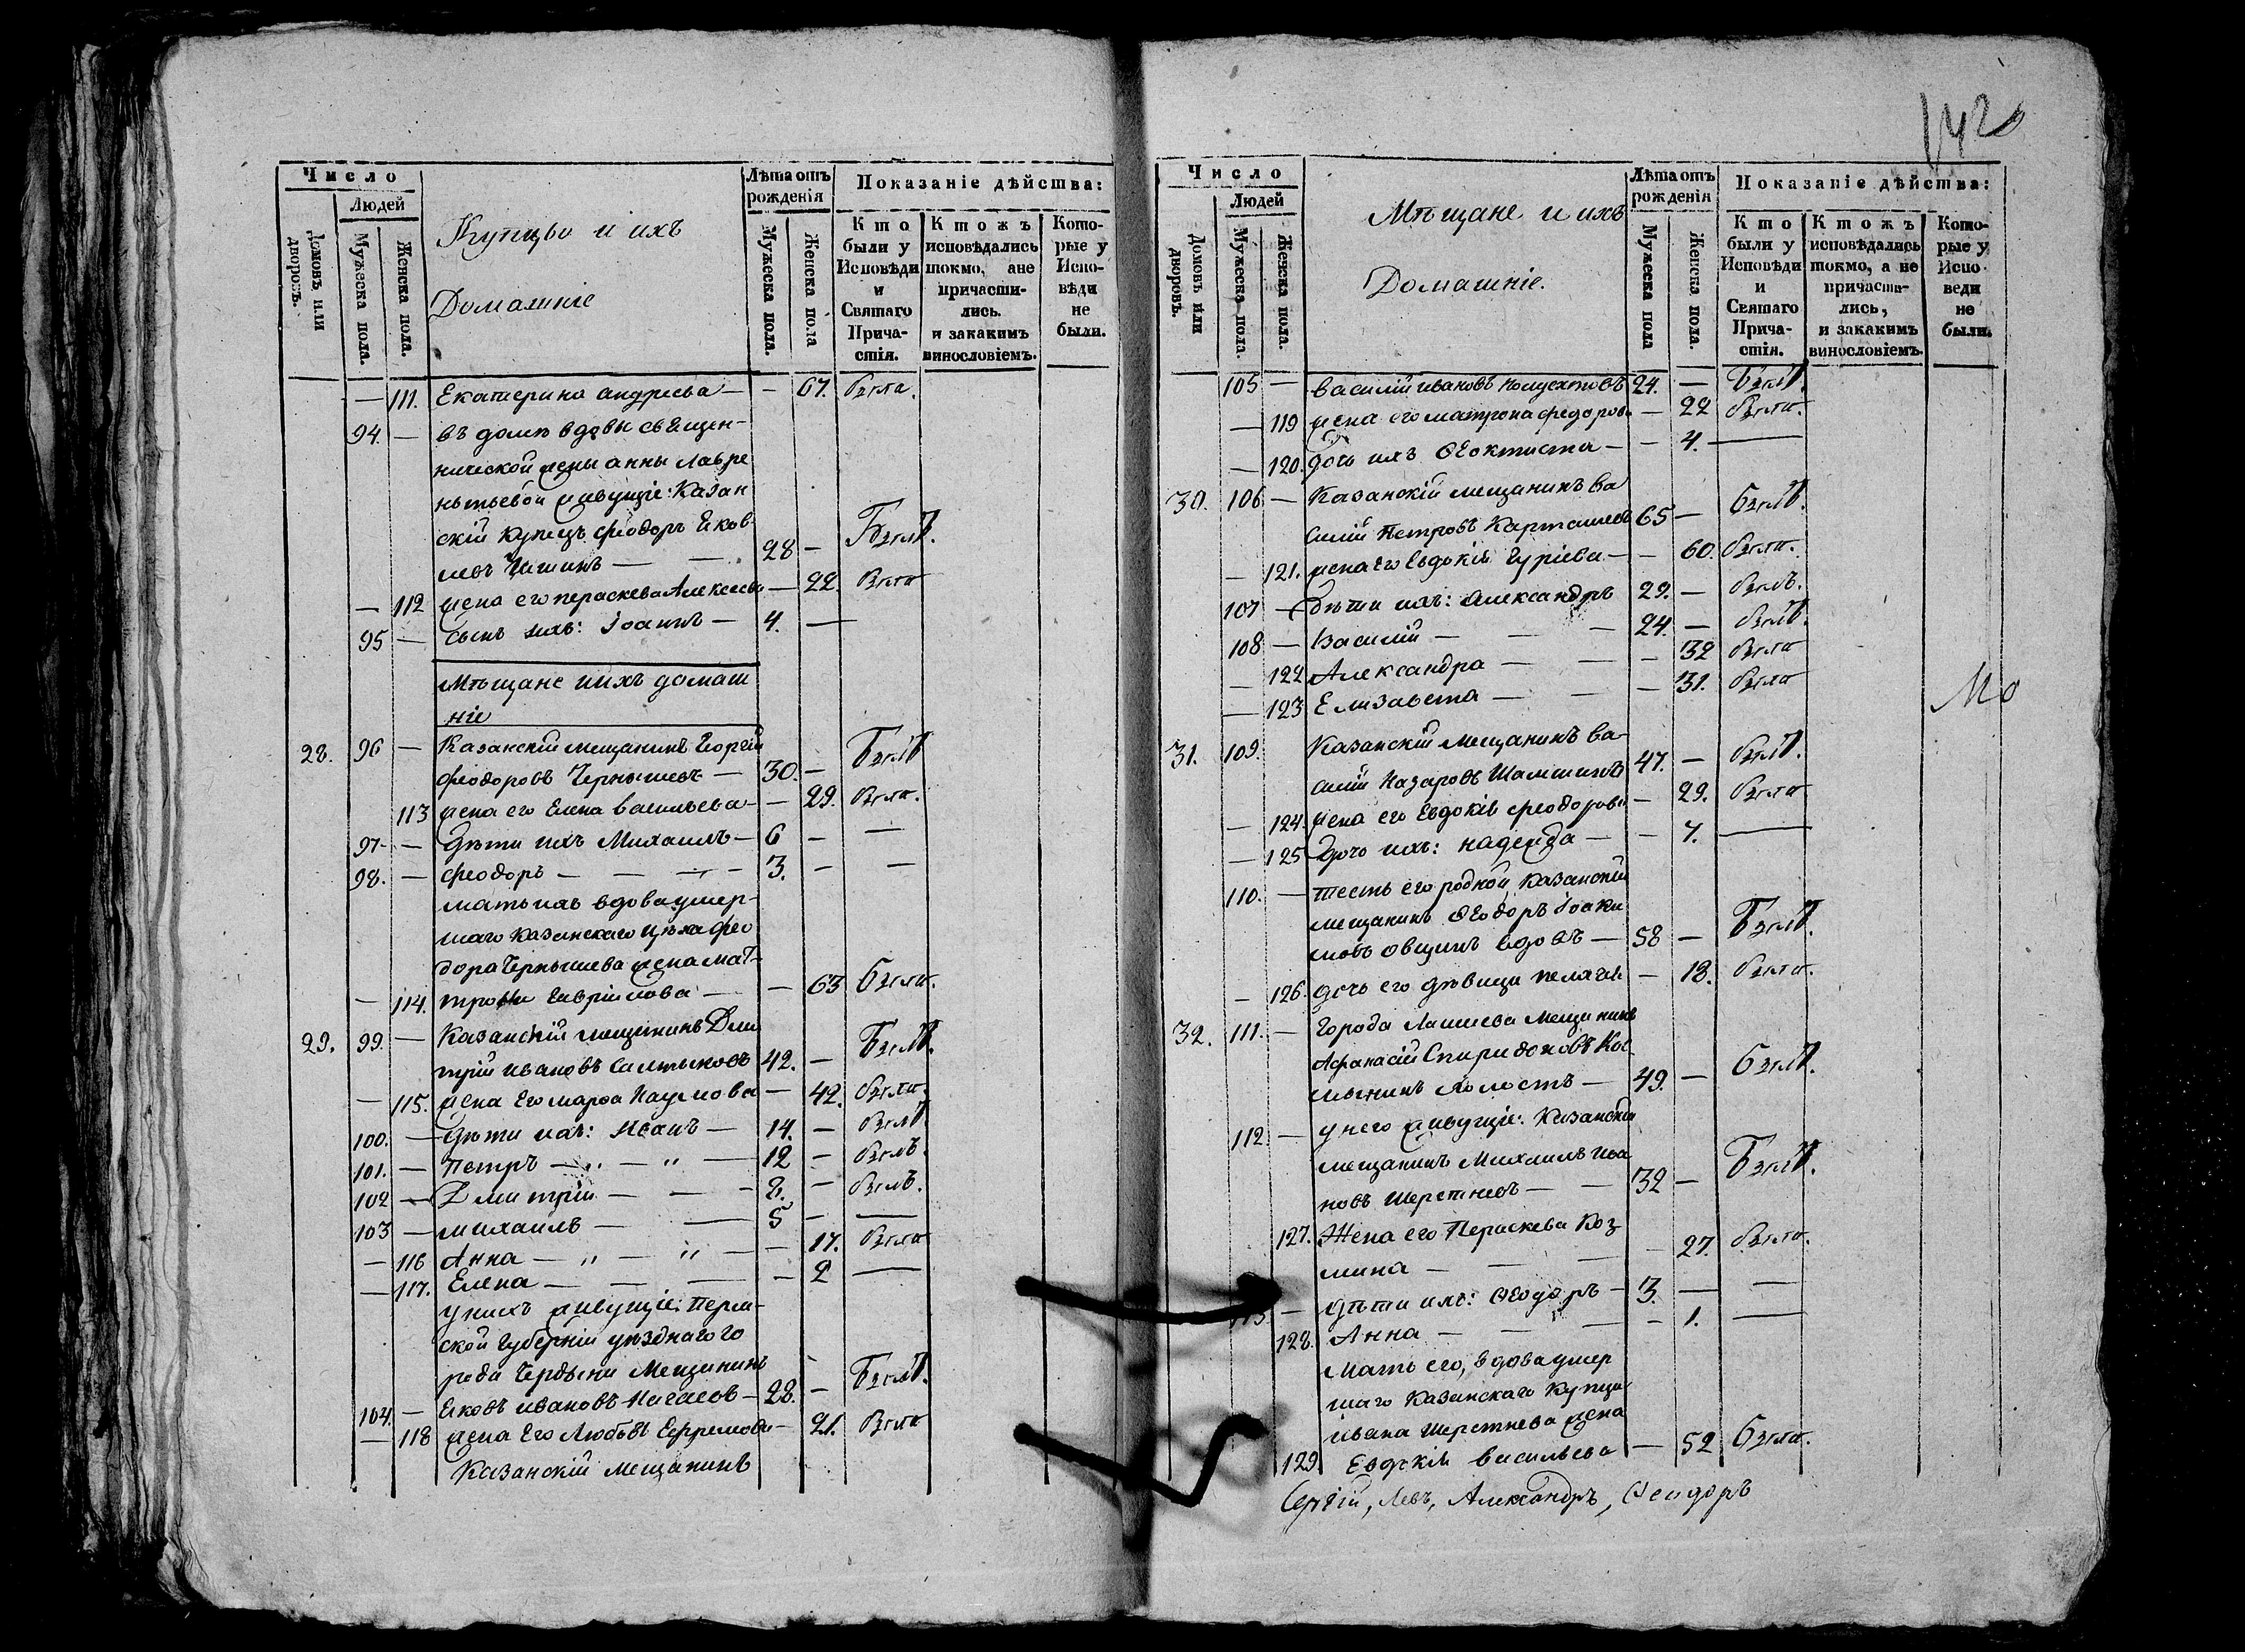 Число
Людей
Домовъ или дворовъ.
Мужеска пола.
Женска пола.
Купцы и ихъ
Домашніе
Лѣта отъ рожденія
Мужеска пола.
Женска пола
Показаніе дѣйства:
Кто были у Исповѣди и Святаго Причастія.
Ктожъ исповѣдались токмо, а не причастились. и закакимъ винословіемъ.
Которые у Исповѣди не были.
— 111. Екатерина андреева — — 67. была.
94. — въ домѣ вдовы священ-
нической жены анны Лавре
нтьевой живущіе: Казан
скій купецъ Феодоръ Яков
левъ — 28 — Былъ.
— 112 жена его параскева Алексеева — 22. была
95 — сынъ ихъ: Іоаннъ — 4. —
Мѣщане иихъ домаш
ніе
28. 96 — Казанскій мещанинъ Георгій
феодоровъ Чернышевъ — 30. — Былъ
113 жена его Елена васильева — — 29. была.
97 — — дѣти ихъ Михаилъ — 6 — —
98. — феодоръ — — — 3. — —
мать ихъ вдова умер-
шаго казанскаго цѣха фео
дора Чернышева жена мат-
— 114. трона Гаврилова — — 63 была.
29. 99. — Казанскій мещанинъ Дми
трій ивановъ Салтыковъ 42. — Былъ.
— 115. жена Его марѳа Наумова — 42. была.
100. — дѣти ихъ: Иванъ — 14. — былъ
101. — петръ — „ — „ — 12 — былъ.
102 — Дмитрій — — — 8. — былъ.
103 — михаилъ — — 5 — —
— 116 Анна — „ — „ — — 17. была
— 117. Елена — — — — 2 —
у нихъ живущіе: Перм-
ской губерніи уѣзднаго го
рода Чердыни Мещанинъ
104. — Яковъ ивановъ — 28. — Былъ.
— 118 жена Его Любовь Ефремова — 21. была
Казанскій мещанинъ
1420
Число
Людей
Домовъ или дворовъ.
Мужеска пола.
Женска пола.
Мѣщане и ихъ
Домашніе.
Лѣта отъ рожденія
Мужеска пола
Женска пола.
Показаніе дѣйства:
Кто были у Исповѣди и Святаго Причастія.
Ктожъ исповѣдались токмо, а не причастились, и закакимъ винословіемъ.
Которые у Исповеди не были.
105 — василій ивановъ 24. — былъ.
— 119 жена его матрона федорова — 22 была.
— 120. дочь ихъ Ѳеоктиста — — 4. —
30. 106 — Казанскій мещанинъ Ва
силій Петровъ Карташевъ 65 — былъ.
— 121. жена его Евдокія Гуріева — — 60. была.
107 — дѣти ихъ: Александръ 29. — былъ.
108 — Василій — — — 24. — былъ.
— 122 Александра — — — 32 была
— 123 Елизавета — — — 31. была
31. 109. Казанскій мещанинъ ва-
силій Назаровъ Шамшинъ 47. — былъ.
— 124. жена его Евдокія феодорова — 29. была
— 125 дочь ихъ: надежда — — 4. —
110. — тесть его родной, казанскій
мещанинъ Ѳеодоръ Іоаки
мовъ овцынъ вдовъ — 58 — Былъ.
— 126. дочь его дѣвица пелагія — 18. была.
32. 111. — Города Лаишева мещанинъ
Афанасій Спиридоновъ Кос-
холостъ — 49. — былъ.
112. — у него живущіе: Казанскій
мещанинъ Михаилъ ива
новъ Шерстневъ — — 32 — Былъ.
127. Жена его Параскева Коз
мина — — — — 27. была.
113 — дѣти ихъ: Ѳеодоръ — 3. — —
128. Анна — — — — 1. —
мать его, вдова умер
шаго Казанскаго купца
ивана Шерстнева жена
129. Евдокія васильева — 52 была.
Сергій, Левъ, Александръ, Ѳеодоръ